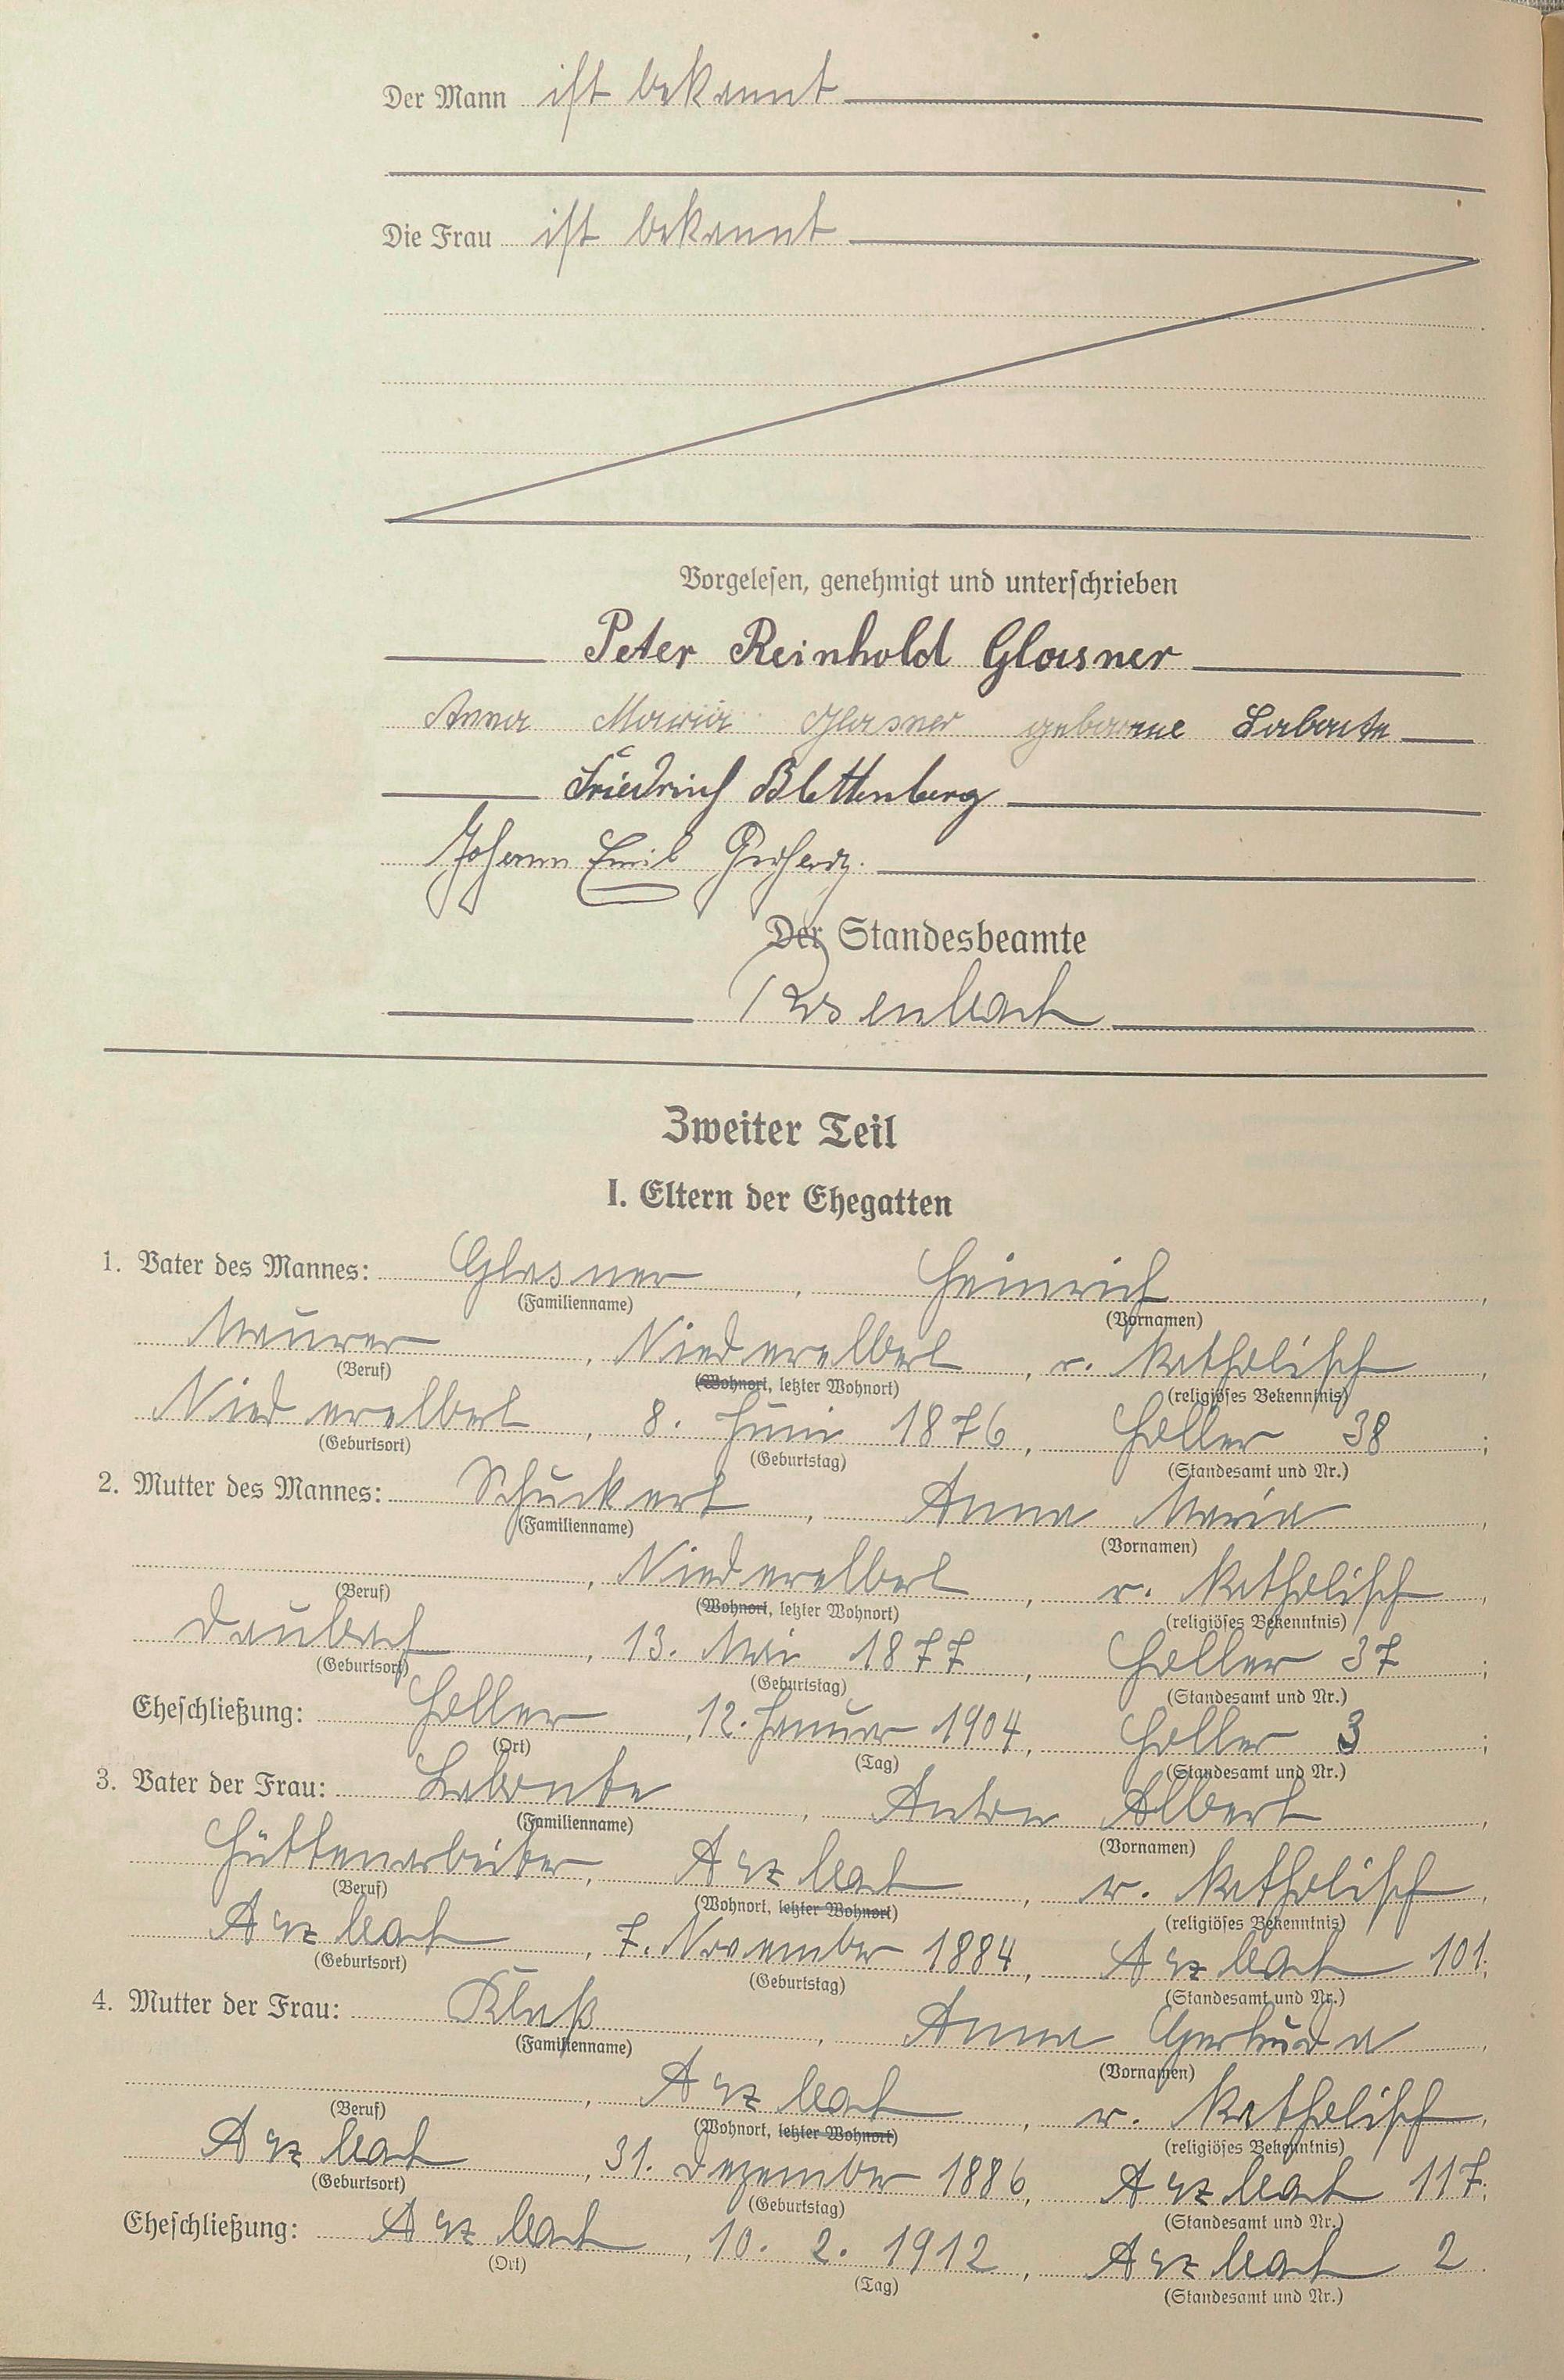 Der Mann ist bekannt
Die Frau ist bekannt
Vorgelesen, genehmigt und unterschrieben
Peter Reinhold Glasner
Anna Maria Glasner geborene Labonte
Friedrich Blettenberg
Johann Emil
Der Standesbeamte
Rosenbach
Zweiter Teil
I. Eltern der Ehegatten
1. Vater des Mannes: Glasner, Heinrich,
(Familienname) (Vornamen)
Maurer, Niederelbert, r. katholisch,
(Beruf) (Wohnort, letzter Wohnort) (religiöses Bekenntnis)
Niederelbert, 8. Juni 1876, Holler 38;
(Geburtsort) (Geburtstag) (Standesamt und Nr.)
2. Mutter des Mannes: Schuckert, Anna Maria,
(Familienname) (Vornamen)
, Niederelbert, r. katholisch,
(Beruf) (Wohnort, letzter Wohnort) (religiöses Bekenntnis)
Daubach, 13. Mai 1877, Holler 37;
(Geburtsort) (Geburtstag) (Standesamt und Nr.)
Eheschließung: Holler, 12. Januar 1904, Holler 3;
(Ort) (Tag) (Standesamt und Nr.)
3. Vater der Frau: Labonte, Anton Albert,
(Familienname) (Vornamen)
Hüttenarbeiter, Arzbach, r. katholisch,
(Beruf) (Wohnort, letzter Wohnort) (religiöses Bekenntnis)
Arzbach, 7. November 1884, Arzbach 101;
(Geburtsort) (Geburtstag) (Standesamt und Nr.)
4. Mutter der Frau: Klaß, Anna Gertruda,
(Familienname) (Vornamen)
, Arzbach, r. katholisch,
(Beruf) (Wohnort, letzter Wohnort) (religiöses Bekenntnis)
Arzbach, 31. Dezember 1886, Arzbach 117;
(Geburtsort) (Geburtstag) (Standesamt und Nr.)
Eheschließung: Arzbach, 10. 2. 1912, Arzbach 2.
(Ort) (Tag) (Standesamt und Nr.)